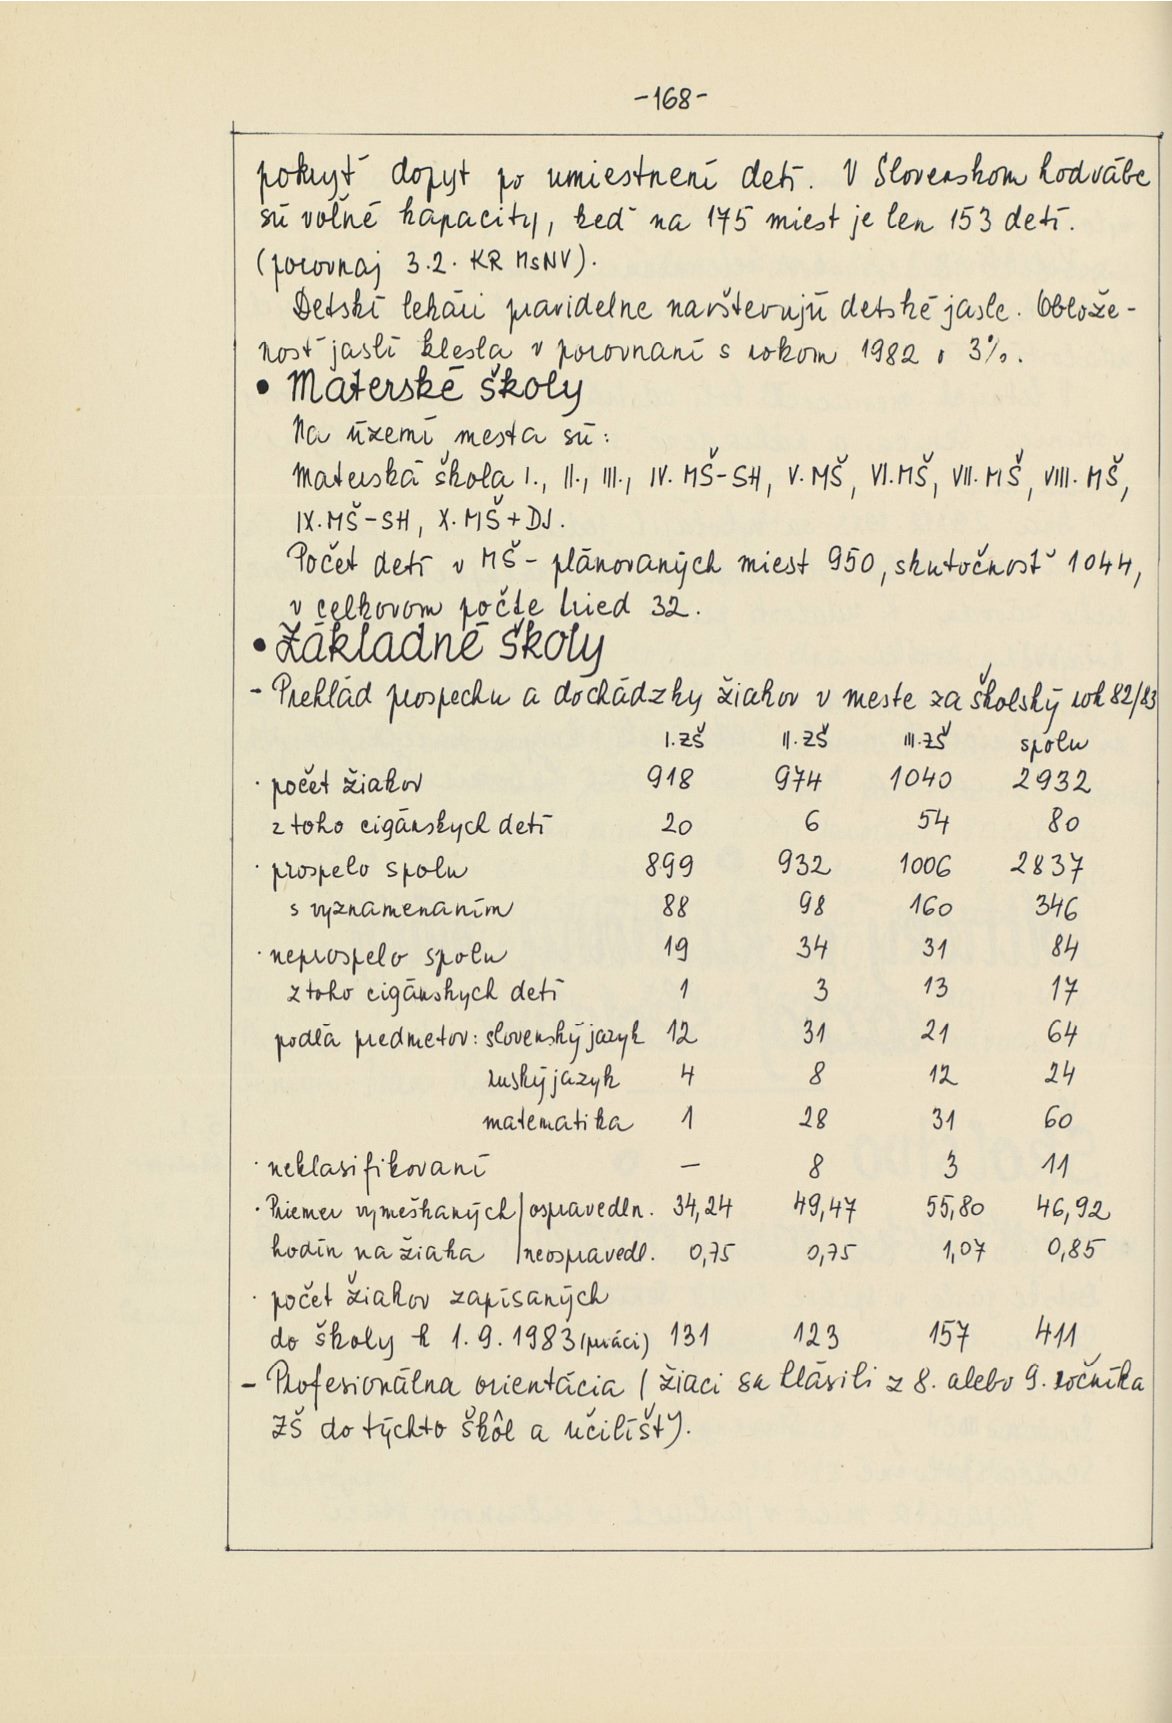 -168-
pokryť dopyt po umiestnení detí. V Slovenskom hodvábe
sú voľné kapacity, keď na 175 miest je len 153 detí.
(porovnaj 3.2. KR MsNV).
Detskí lekári pravidelne navštevujú detské jasle. Oblože-
nosť jaslí klesla v porovnaní s rokom 1982 o 3%.
• Materské školy
Na území mesta sú:
Materská škola I., II., III., IV. MŠ-SH, V. MŠ, VI. MŠ, VII. MŠ, VIII. MŠ,
IX. MŠ-SH, X. MŠ + DJ.
Počet detí v MŠ - plánovaných miest 950, skutočnosť 1044,
v celkovom počte tried 32.
• Základné školy
- Prehľad prospechu a dochádzky žiakov v meste za školský rok 82/83
I. ZŠ II. ZŠ III. ZŠ spolu
· počet žiakov 918 974 1040 2932
z toho cigánskych detí 20 6 54 80
· prospelo spolu 899 932 1006 2837
s vyznamenaním 88 98 160 346
· neprospelo spolu 19 34 31 84
z toho cigánskych detí 1 3 13 17
podľa predmetov: slovenský jazyk 12 31 21 64
ruský jazyk 4 8 12 24
matematika 1 28 31 60
· neklasifikovaní — 8 3 11
· Priemer vymeškaných / ospravedln. 34,24 49,47 55,80 46,92
hodín na žiaka / neospravedl. 0,75 0,75 1,07 0,85
· počet žiakov zapísaných
do školy k 1.9.1983 (prváci) 131 123 157 411
- Profesionálna orientácia (žiaci sa hlásili z 8. alebo 9. ročníka
ZŠ do týchto škôl a učilíšť).